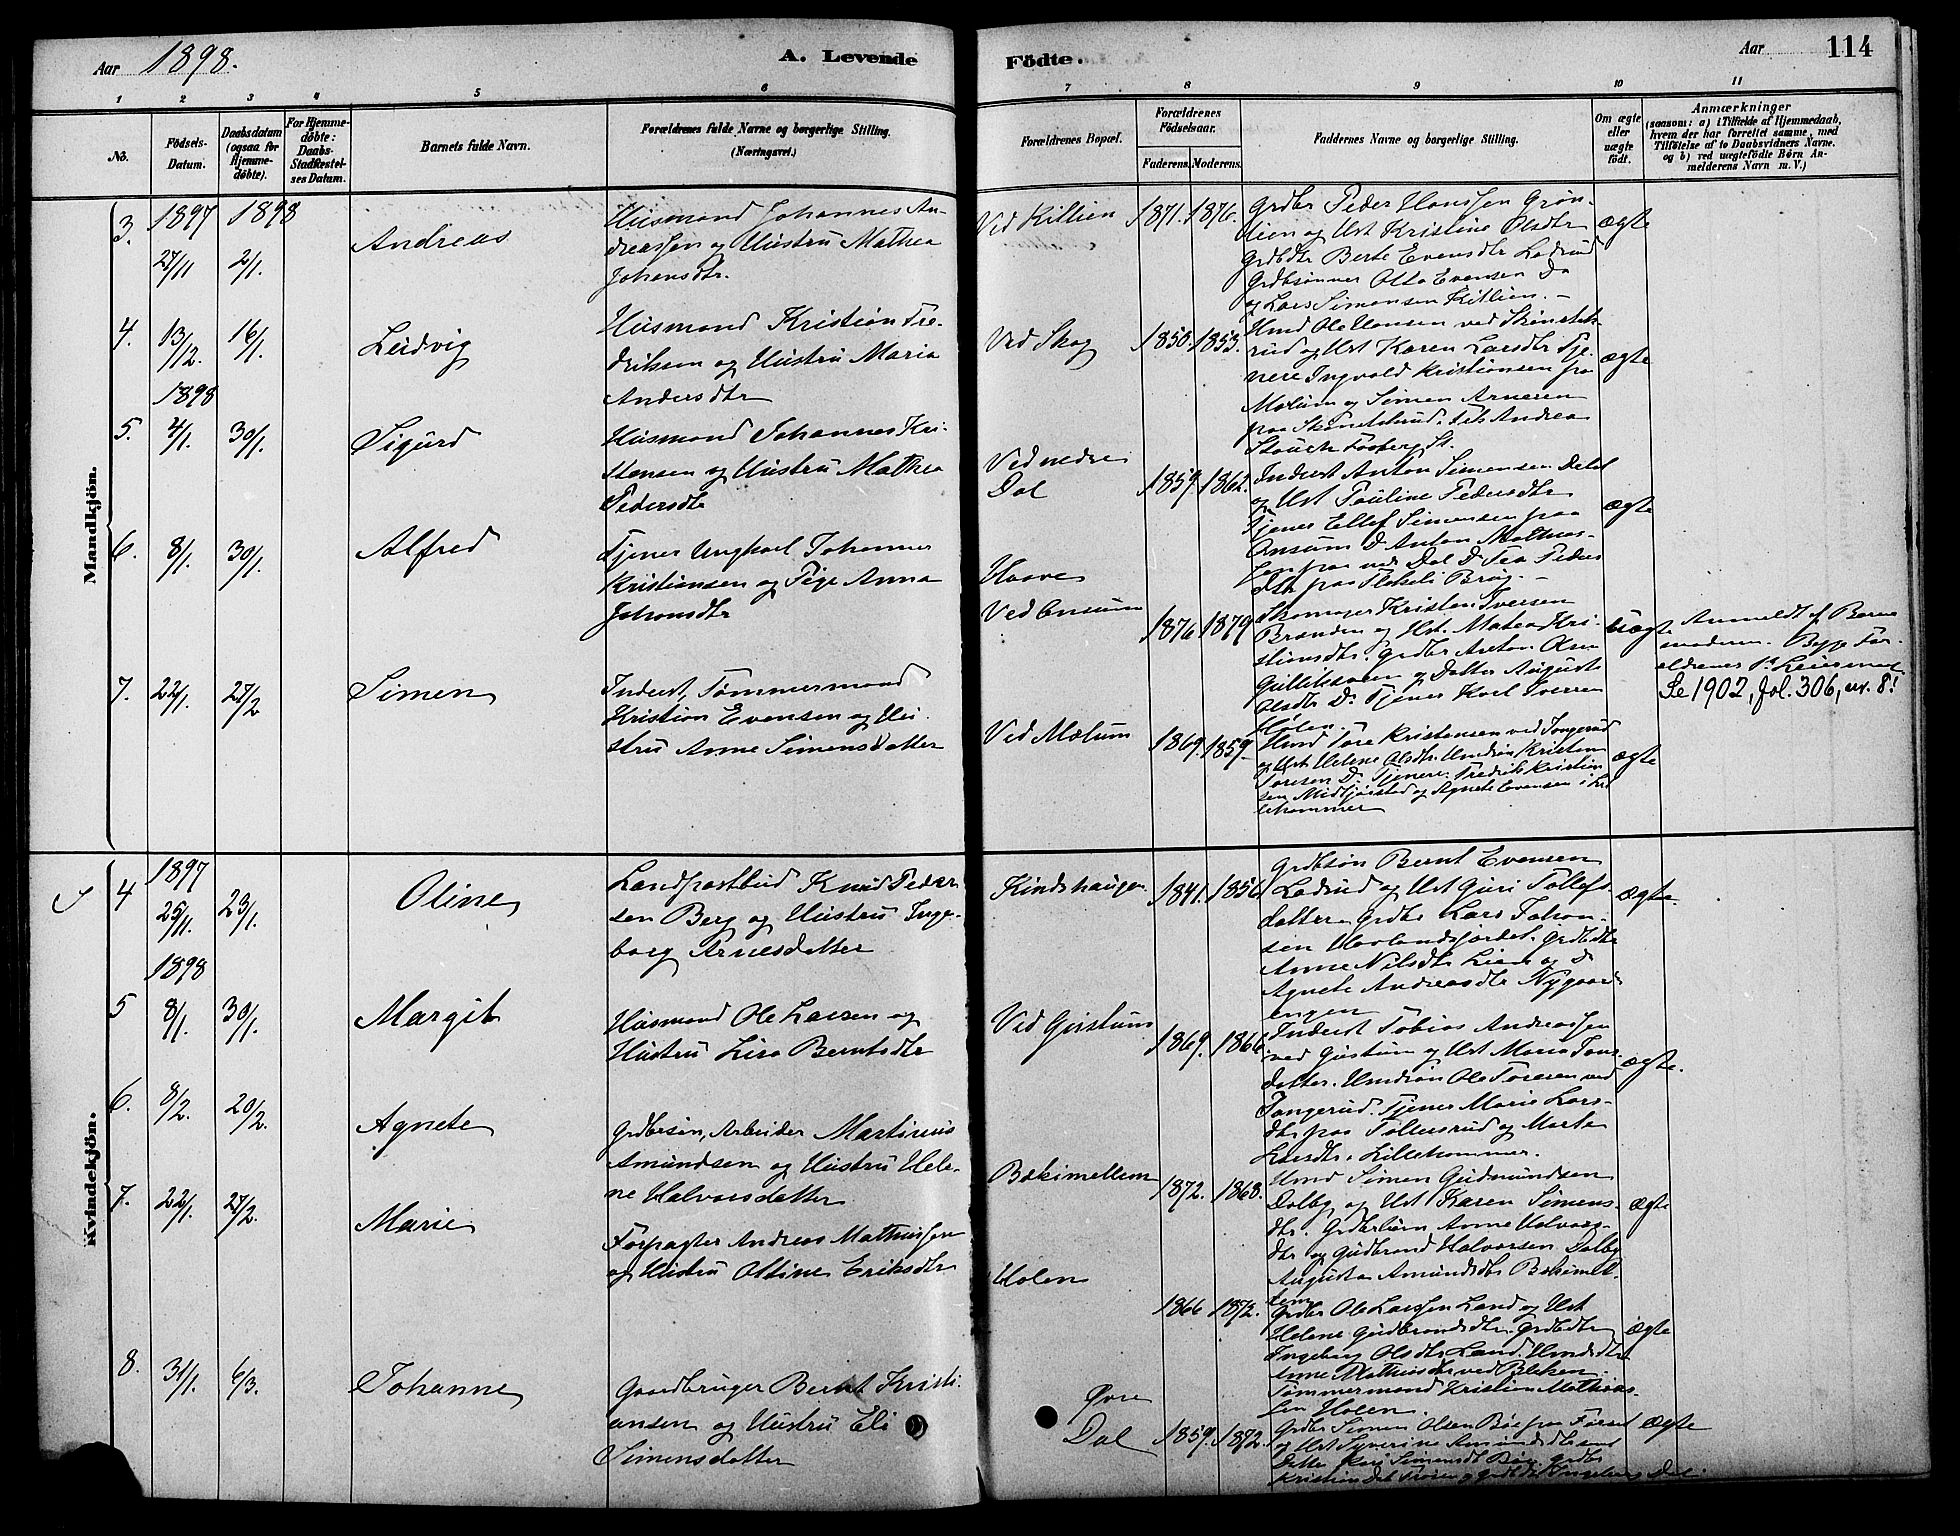 Aar 1898.
A. Levende
Födte.
Aar
114
1
2
3
4
5
6
7
8
9
10
11
No.
Födsels-
Datum.
Daabsdatum
(ogsaa for
Hjemme-
döbte).
For Hjemme-
döbte:
Daabs-
Stadfæstel-
ses Datum.
Barnets fulde Navn.
Forældrenes fulde Navne og borgerlige Stilling.
(Næringsvei.)
Forældrenes Bopæl.
Forældrenes
Födselsaar.
Faderens.
Moderens.
Faddernes Navne og borgerlige Stilling.
Om ægte
eller
uægte
født.
Anmærkninger
(saasom: a) i Tilfælde af Hjemmedaab,
hvem der har forrettet samme, med
Tilföielse af to Daabsvidners Navne.
og b) ved uægtefödte Börn An-
melderens Navn m. V.)
Mandkjön.
3.
1897
27/11
1898
2/1.
Andreas
Husmand Johannes An-
dreassen og Hustru Mathea
Johansdtr.
Ved Killien
1871.
1876.
Grdbr Peder Hanssen Grøn-
lien og Hst Kristine Olsdtr
Grdbdtr Berte Evensdtr Ladrud
Grdbsønner Otto Evensen Do
og Lars Simensen Killien. –
ægte
4.
13/12.
16/1.
Ludvig
Husmand Kristian Fre-
driksen og Hustru Maria
Andersdtr
Ved Skog
1850.
1853.
Hmd Ole Hansen ved
rud og Hst Karen Larsdtr Tje-
nere Ingvald Kristiansen paa
Mælum og Simen Arnesen
paa
ægte
1898
5.
4/1.
30/1.
Sigurd
Husmand Johannes Kri-
stensen og Hustru Mathea
Pedersdtr
Ved nedre
Dal
1859.
1862.
Inderst Anton Simensen
og Hst Pauline Pedersdtr
Tjener Ellef Simensen paa
Ansum D. Anton Mathias-
sen paa nedr Dal D. Tea Peders
dtr paa
ægte
6.
8/1.
30/1.
Alfred
Tjener Ungkarl Johannes
Kristiansen og Pige Anna
Johansdtr
Haave
Ved Ansum
1876
1879
Skomager Kristen Iversen
Brænden og Hst. Matea Kri-
stiansdtr. Grdbr Anton Olsen
og Datter Auguste
Olsdtr D. Tjener Karl Iversen
Holen.
uægte
Anmeldt af Barne
moderen. Begge For-
ældrenes 1ste Leiermaal
Se 1902, fol. 306, nr. 8!
7.
22/1.
27/2
Simen
Inderst, Tømmermand
Kristian Evensen og Hu-
stru Anne Simensdatter
Ved Mælum
1869.
1859.
Hmd Tore Kristensen ved Jongerud
og Hst Helene Olsdtr. Hmdsøn Kristian
Toresen D. Tjenere Fredrik Kristian
sen og Agnete Evensen i Lil-
lehammer
ægte
Kvindekjön.
4
1897
25/11.
23/1.
Oline
Landpostbud Knud Peder-
sen Berg og Hustru Inge-
borg Arnesdatter
Kindshaugen
1841.
1856.
Grdbsøn Bernt Evensen
Ladrud og Hst Guri Tollefs-
datter Grdbr Lars Johan-
sen Havlandsjordet. Grdbdtr
Anne Nilsdtr Lien og D.
Agnete Andreasdtr Nygaards
engen
ægte.
1898
5
8/1.
30/1.
Margit
Husmand Ole Larsen og
Hustru Lisa Berntsdtr
Ved Gjistum
1869.
1866.
Inderst Tobias Andreassen
ved Gjistum og Hst Maria Tors-
datter. Hmdsøn Ole Toresen ved
Jongerud. Tjener Marie Lars-
dtr paa Tollersrud og Marte
Larsdtr i Lillehammer.
ægte.
6.
8/2.
20/2.
Agnete
Grdbrsøn, Arbeider Martinus
Amundsen og Hustru Hele-
ne Halvorsdatter
Bækimellem
1872.
1868.
Hmd Simen Gudmundsen
Dalby og Hst Karen Simens-
dtr. Grdbrbørn Anne Halvors-
dtr og Gudbrand Halvorsen Dalby
Augusta Amundsdtr Bækimel-
lem
ægte
7.
22/1.
27/2.
Marie
Forpagter Andreas Mathissen
og Hustru Oltine Eriksdtr
Holen
1866
1872.
Grdbr Ole Larssen Land og Hst
Helene Gudbrandsdtr. Grdbdtr
Ingeborg Olsdtr Land. Hmdsdtr
Anne Mathiasdtr ved Bækken
Tømmermand Kristian Mathias-
sen Holen.
ægte
8.
31/1.
6/3.
Johanne
Gaardbruger Bernt Kristi-
ansen og Hustru Eli
Simensdatter
Øvre
Dal
1859.
1872.
Grdbr Simen Olsen Bøe paa Forset
og Hst Syverine Amundsdtr samt
Datter Kari Simensdt Bøe Grdbr
Kristian
ægte